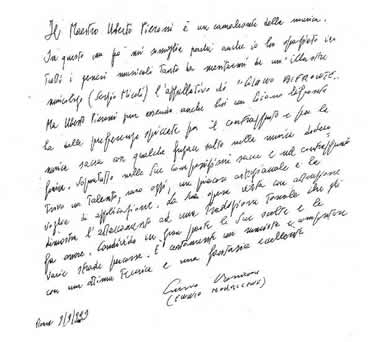 Il Maestro Uberto Pieroni è un camaleonte della musica.
In questo un po' mi somiglia perché anche io ho spaziato in
tutti i generi musicali tanto da meritarmi da un' illustre
musicologo (Sergio Miceli) l'appellativo di "GIANO BIFRONTE".
Ma Uberto Pieroni pur essendo anche lui un Giano bifronte
ha delle preferenze spiccate per il contrappunto e per la
musica sacra con qualche fugace salto nella musica
Soprattutto nelle sue composizioni sacre e nel contrappunto
trovo un talento, una oggi, un piacere artigianale e la
voglia di applicazione. La sua opera vista con attenzione
dimostra l'attaccamento ad una tradizione tonale che gli
fa onore. Condivido in gran parte le sue scelte e le
varie strade percorse. È certamente un musicista e compositore
con un ottima tecnica e una fantasia eccellente
Ennio Morricone
(ENNIO MORRICONE)
Roma 9/9/